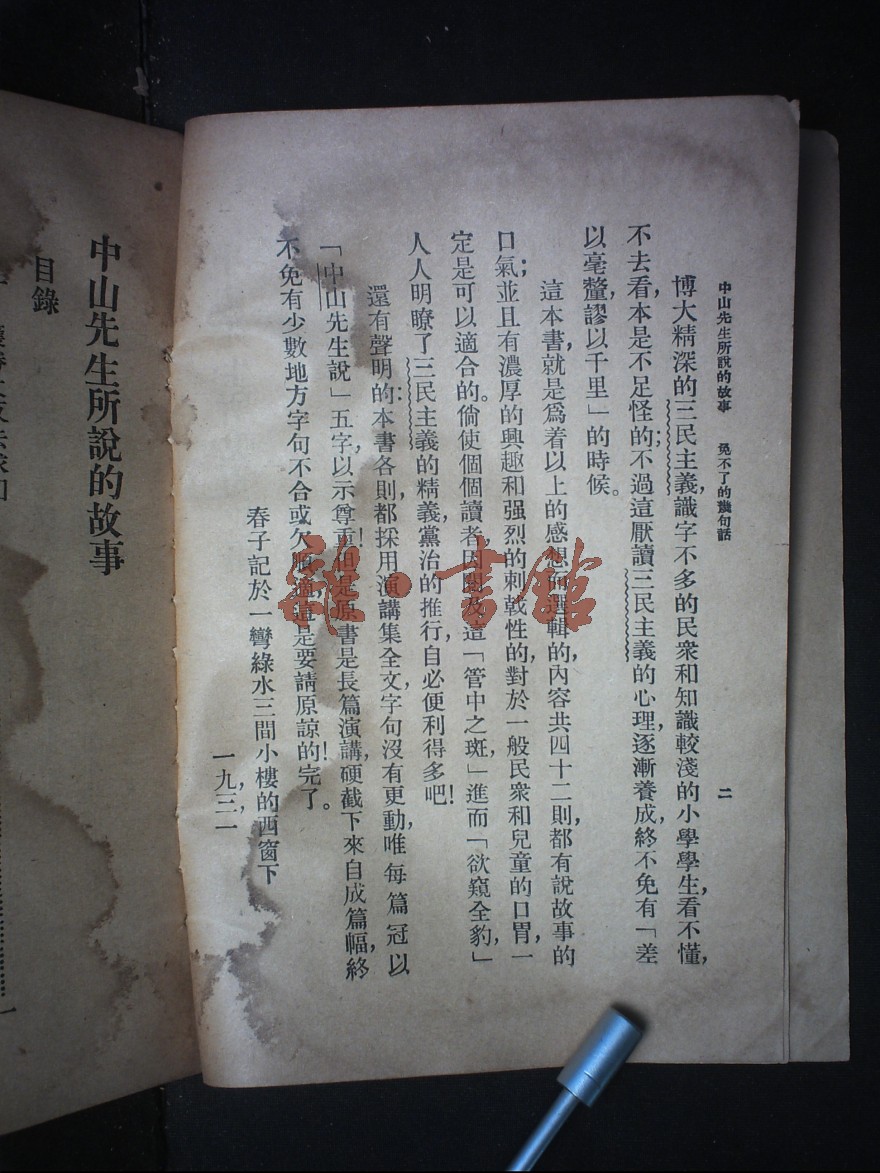 中山先生所說的故事　免不了的幾句話　二
博大精深的三民主義，識字不多的民衆和知識較淺的小學學生，看不懂，
不去看，本是不足怪的；不過這厭讀三民主義的心理，逐漸養成，終不免有「差
以毫釐，謬以千里」的時候。
這本書，就是爲着以上的感想而選輯的，內容共四十二則，都有說故事的
口氣；並且有濃厚的興趣和强烈的刺戟性的，對於一般民衆和兒童的口胃，一
定是可以適合的。倘使個個讀者，因閱及這「管中之斑」，進而「欲窺全豹」，
人人明瞭了三民主義的精義，黨治的推行，自必便利得多吧！
還有聲明的：本書各則，都採用演講集全文，字句沒有更動，唯每篇冠以
「中山先生說」五字，以示尊重！但是原書是長篇演講，硬截下來，自成篇幅，終
不免有少數地方字句不合或欠順適，這是要請原諒的！完了。
春子記於一彎綠水三間小樓的西窗下
一九，三，一
中山先生所說的故事
目錄
一